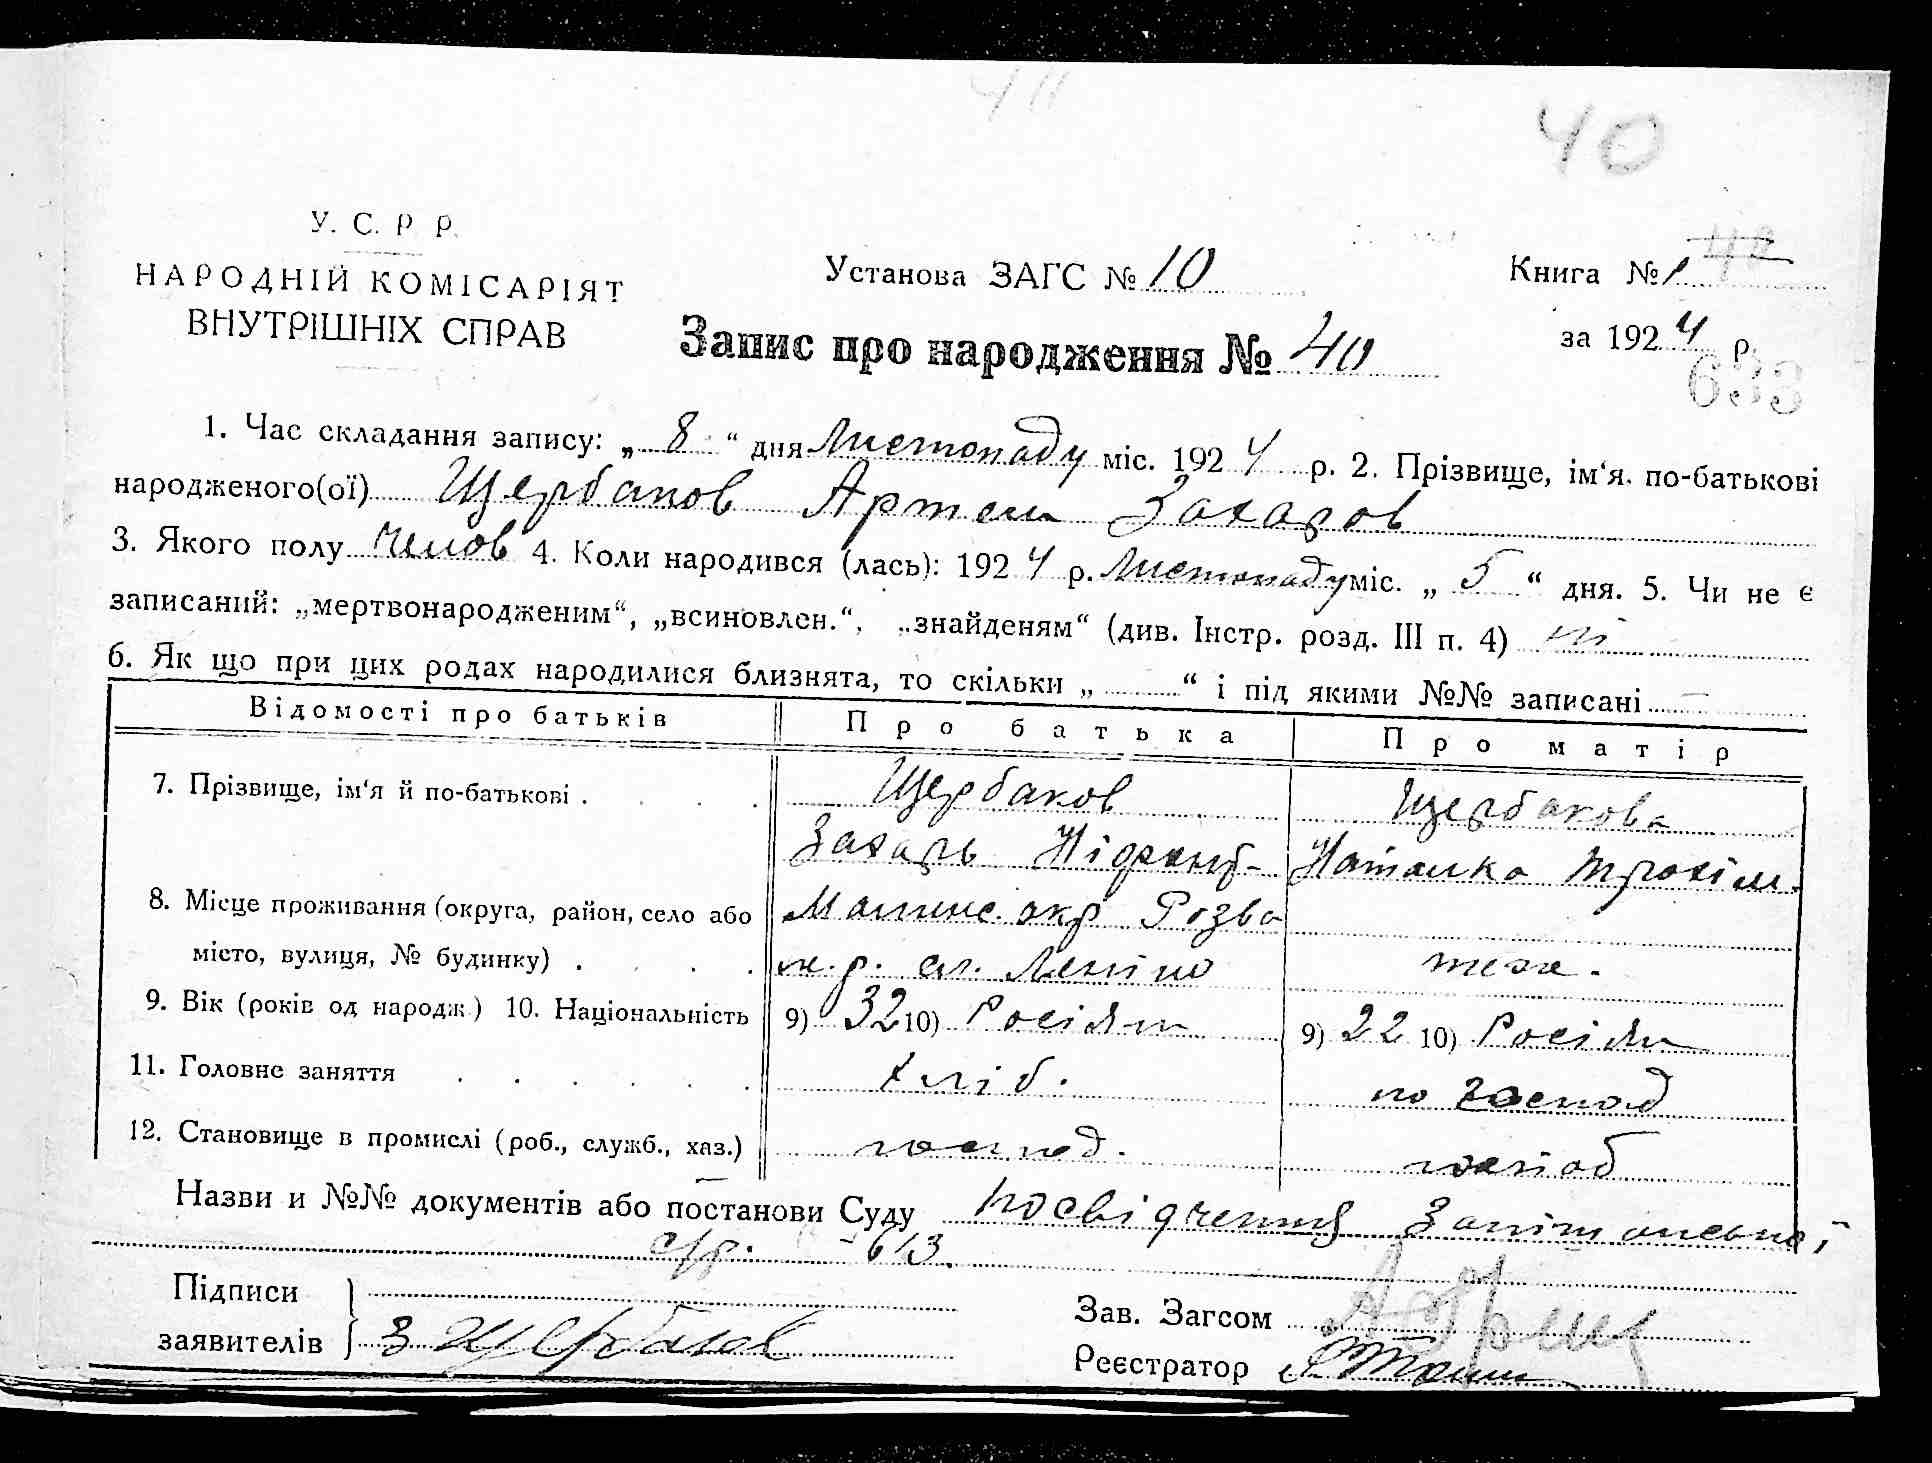 40
У. С. Р Р.
НАРОДНІЙ КОМІСАРІЯТ
ВНУТРІШНІХ СПРАВ
Установа ЗАГС № 10
Книга № 1
Запис про народження № 40
за 1924 р.
633
1. Час складання запису: „ 8 “ дня Листопаду міс. 1924 р. 2. Прізвище, ім‘я. по-батькові
народженого(ої) Щербаков Артем Захаров
3. Якого полу чолов 4. Коли народився (лась): 1924 р. Листопаду міс. „ 5 “ дня. 5. Чи не є
записаний: „мертвонародженим“, „всиновлен.“, „знайденям“ (див. Інстр. розд. III п. 4) ні
6. Як що при цих родах народилися близнята, то скільки „ “ і під якими №№ записані —
Відомості про батьків Про батька Про матір
7. Прізвище, ім‘я й по-батькові . Щербаков Щербакова
Захарь Наталка Трохим.
8. Місце проживання (округа, район, село або окр Розва
місто, вулиця, № будинку) . ж. р. сл. Леніно теж.
9. Вік (років од народж.) 10. Національність 9) 32 10) Росіян 9) 22 10) Росіян
11. Головне заняття хліб. по господ
12. Становище в промислі (роб., служб., хаз.) господ. господ
Назви и №№ документів або постанови Суду посвідчення
с/р. 613.
Підписи
заявителів З Щербаков
Зав. Загсом
Реєстратор